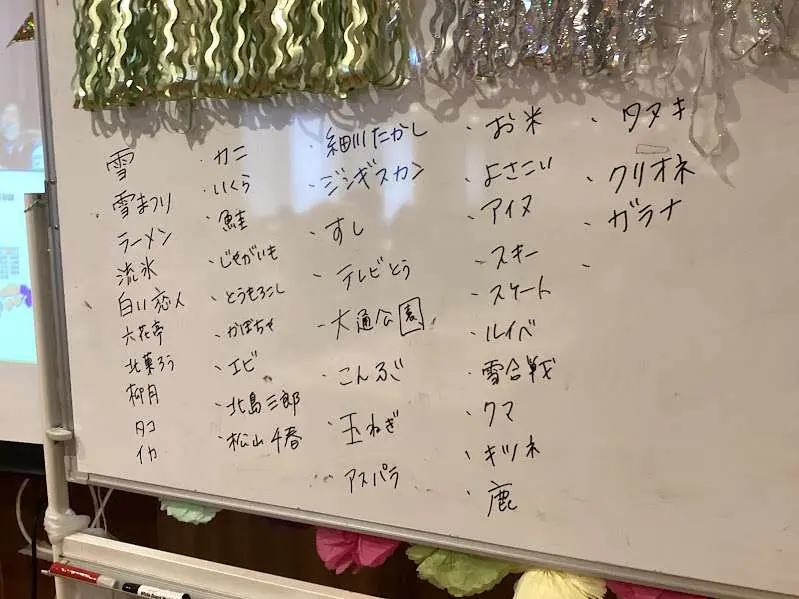 雪
・雪まつり
ラーメン
流氷
白い恋人
六花亭
北菓ろう
柳月
タコ
イカ
・カニ
・いくら
・鮭
・じゃがいも
・とうもろこし
・かぼちゃ
・エビ
・北島三郎
・松山千春
・細川たかし
・ジンギスカン
・すし
・テレビとう
・大通公園
・こんぶ
・玉ねぎ
・アスパラ
・お米
・よさこい
・アイヌ
・スキー
・スケート
・ルイベ
・雪合戦
・クマ
・キツネ
・鹿
・タヌキ
・クリオネ
・ガラナ
・